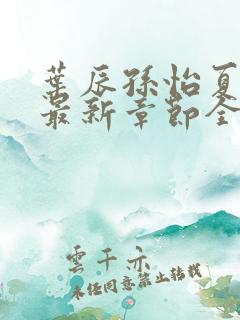 葉辰孫怡夏
最新章節全
雲千亦
未经同意禁止转载